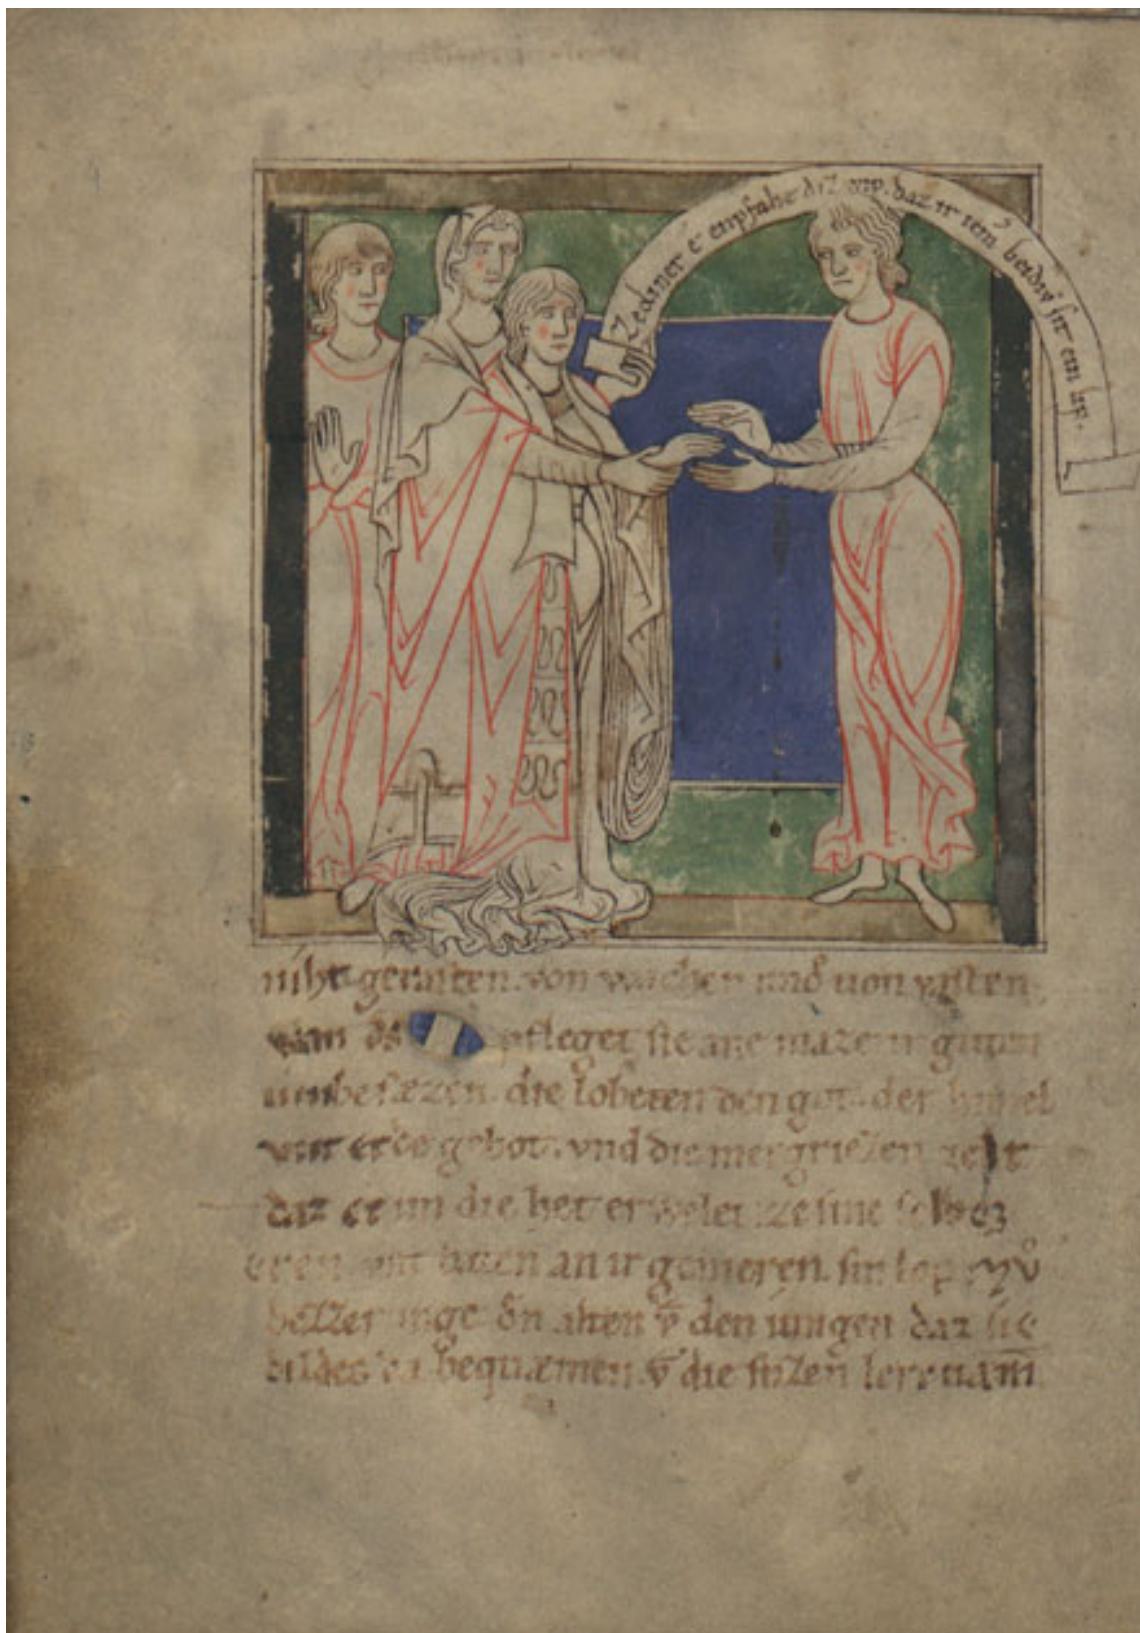 Zediner e enpfahe diz wip. daz ir iem̾ beidiv sit ein lip.
niht geraiten. von wacher und uon vasten.
pfleget sie ane maze ir guten
umbesæzen. die lobeten den got. der himel
unt erde gebot. vnd die mergriezen zelt
daz er im die het erwelet. ze sine selbez
eren. unt baten an ir gemeren. sin lop
bezzerunge dͤn alten vñ den iungen daz sie
bildes da bequæmen. vñ die suzen lere nam̄